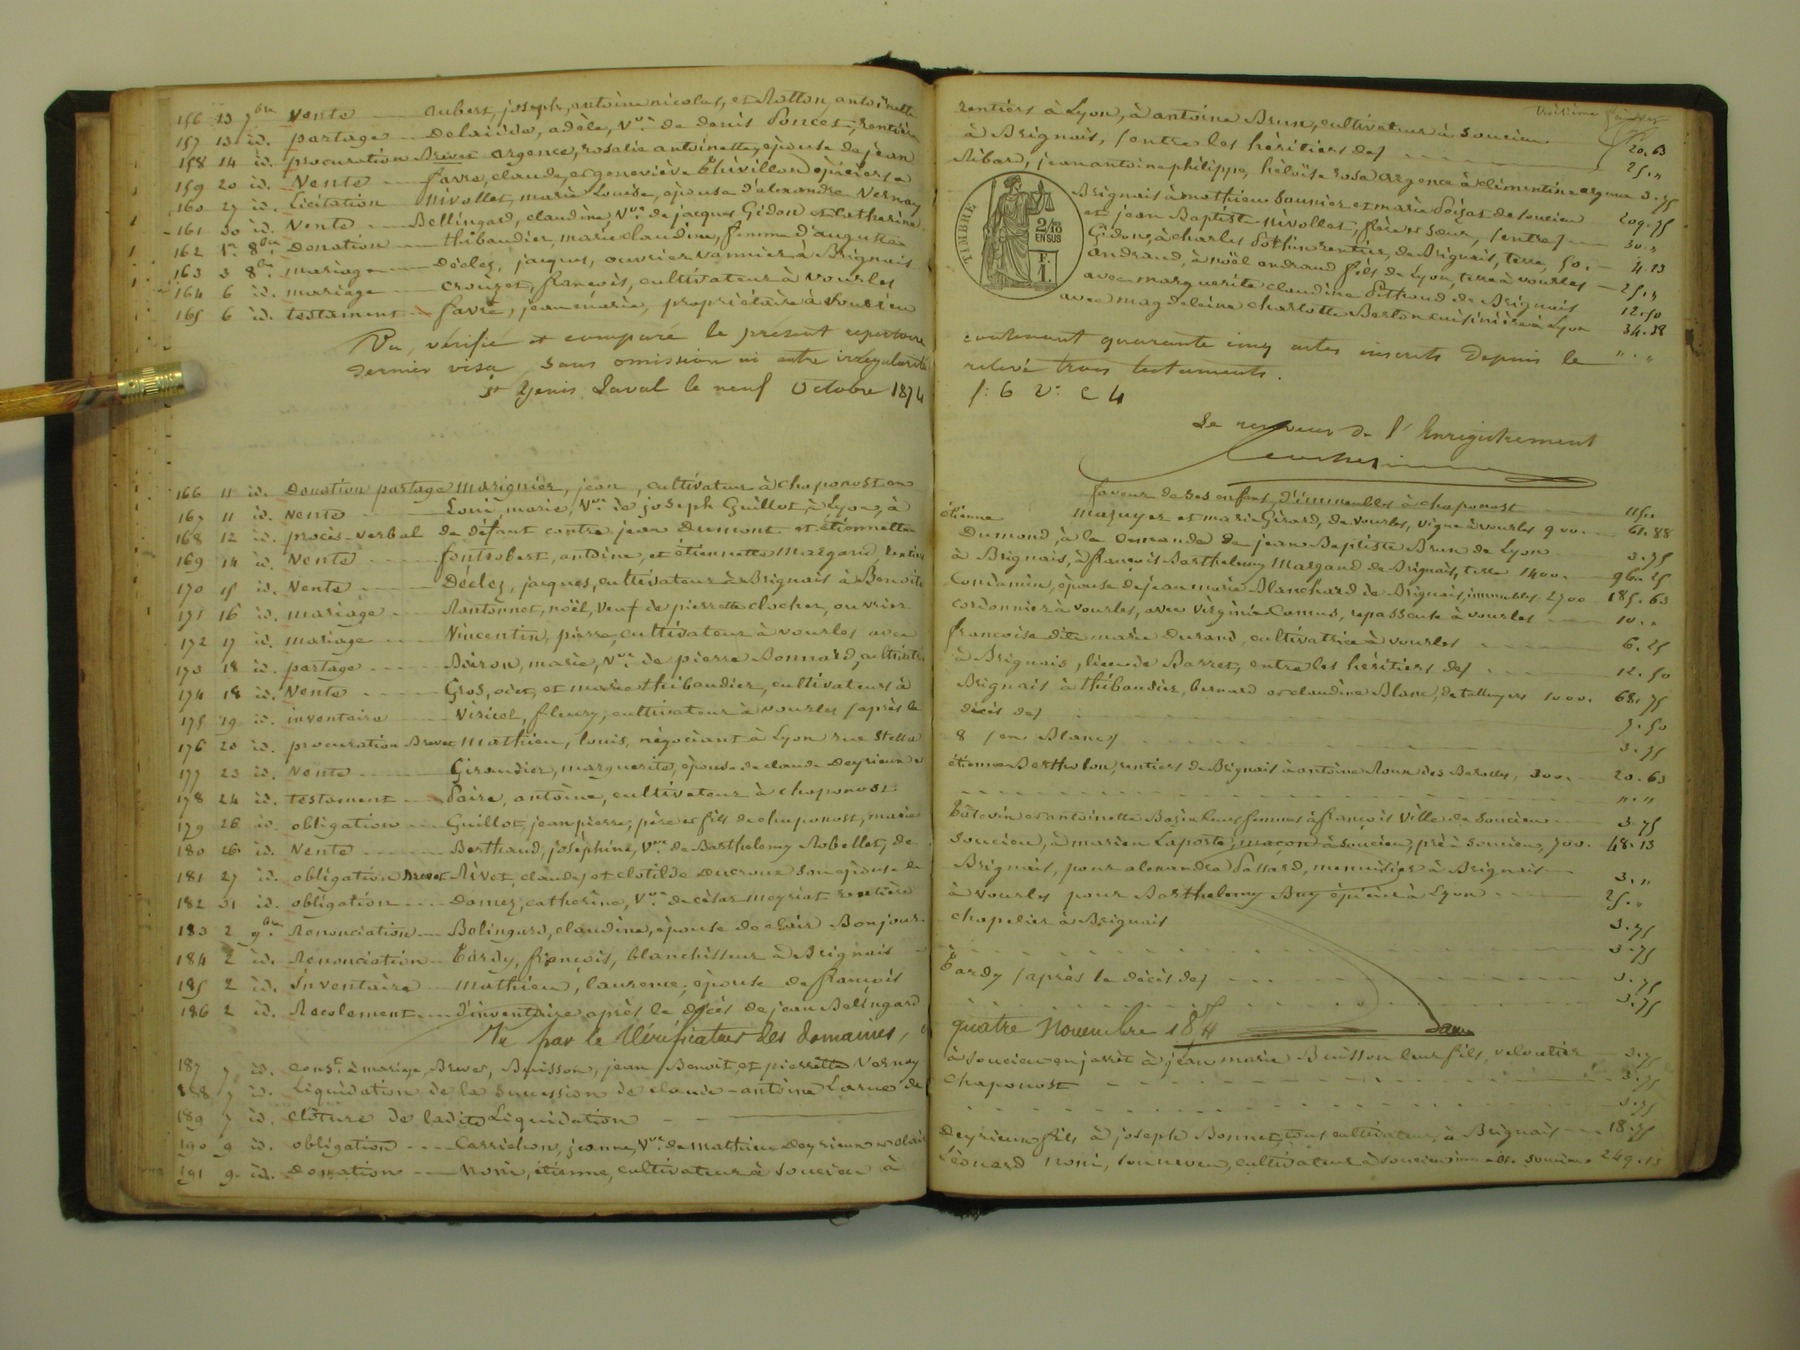 156 13 7bre Vente Aubert, joseph, antoine nicolas, et Rotton, antoinette
157 13 id. partage Delaiide, adèle, Vve de denis Poncet, rentière
158 14 id. procuration Brevet argence, rosalie antoinette, épouse de jean
159 20 id. Vente favre, claude, et geneviève Thévillon épiciers à
160 27 id. Licitation Nivollet, marie Louise, épouse d'alexandre Vernay
161 30 id. Vente Bellingard, claudine Vve de jacques Gédon et Catherine
162 1er 8bre Donation thibaudier, marie claudine, femme d'auguste
163 3 8bre mariage Déclez, jacques, ouvrier vannier à Brignais
164 6 id. mariage Crouzet, françois, cultivateur à vourles
165 6 id. testament favre, jean marie, propriétaire à Soucieu
Vu, vérifié et comparé le présent repertoire
dernier visa, sans omission ni autre irrégularité
St Genis Laval le neuf Octobre 1874
166 11 id. Donation partage Marignier, jean, cultivateur à Chaponost en
167 11 id. Vente marie, Vve de joseph Guillot, à Lyon, à
168 12 id. procès-verbal de défaut contre jean Dumont et étiennette
169 14 id. Vente fontrobert, antoine, et étiennette Margand, rentiers
170 15 id. Vente Déclez, jacques, cultivateur à Brignais à Benoite
171 16 id. mariage noël, Veuf de pierrette clocher, ouvrier
172 17 id. mariage Vincentin, pierre, cultivateur à vourles avec
173 18 id. partage Boiron, marie, Vve de pierre Bonnard, cultivatrice
174 18 id. Vente Gros, et marie thibaudier, cultivateurs à
175 19 id. inventaire Viricel, fleury, cultivateur à vourles (après le
176 20 id. procuration Brevet Mathieu, louis, négociant à Lyon rue Stella
177 23 id. Vente Giraudier, marguerite, épouse de claude Deyrieux et
178 24 id. testament Paire, antoine, cultivateur à Chaponost
179 26 id. obligation Guillot, jean pierre, père et fils de chaponost, marie
180 26 id. Vente Berthaud, joséphine, Vve de Barthelemy Robellet, de
181 27 id. obligation Brevet Rivet, claude, et clotilde Ducroux son épouse de
182 31 id. obligation Domez, catherine, Vve de césar meyriat rentière
183 2 9bre Renonciation Belingard, claudine, épouse de clair Bonjour
184 2 id. Renonciation Tardy, françois, blanchisseur à Brignais
185 2 id. Inventaire Mathieu, laurence, épouse de françois
186 2 id. Recolement d'inventaire après le décès de jean Belingard
Vu par le Vérificateur des domaines,
187 7 id. Const à mariage, Brevet, Buisson, jean Benoit et pierrette Vernay
188 7 id. Liquidation de la succession de claude-antoine Larue de
189 7 id. Clôture de ladite Liquidation
190 9 id. obligation Carrichon, jeanne, Vve de mathieu Deyrieux
191 9 id. Donation Noni, étienne, cultivateur à Soucieu à
rentiers à Lyon, à antoine Brun, cultivateur à Soucieu 20.63
à Brignais, (entre les héritiers de) 25.„
Ribard, jean antoine philippe, héloïse rosa argence à clémentine argence 3.75
TIMBRE 2/10 EN SUS F. 1
Brignais à mathieu Saunier et marie Poizat de Soucieu 209.75
et jean Baptiste Nivollet, frère et soeur, (entre) 30.„
Gédon, à charles Pothin rentier, de Brignais, terre, 50. 4.13
andraud, à noël andraud fils de Lyon, terre à vourles 25.„
avec marguerite claudine Pithoud de Brignais 12.50
avec magdeleine charlotte Berton cuisinière à Lyon 34.38
contenant quarante cinq actes inscrits depuis le „.„
relevé trois testaments.
f: 6 V: C 4
Le receveur de l'Enregistrement
faveur de ses enfants, d'immeubles à chaponost
étienne mazuyer et marie Girard, de vourles, vigne à vourles 900. 61.88
Dumond, à la demande de jean Baptiste Brun de Lyon 3.75
à Brignais, à françois Barthelemy Margand de Brignais, terre 1400. 96.25
Condamin, épouse de jean marie Blanchard de Brignais, immeubles 2700 185.63
cordonnier à vourles, avec virginie Camus, repasseuse à vourles 10.„
françoise dite marie Durand, cultivatrice à vourles 6.25
à Brignais, lieu de Barret, entre les héritiers de) 12.50
Brignais à thibaudier, bernard et claudine Blanc, de talluyers 1000. 68.75
décès de) 7.50
8 (en Blanc) 3.75
étienne Bertholon, rentiers de Brignais à antoine Roux des Barolles, 300. 20.63
„.„
Tatevin et antoinette Bazin leurs femmes à françois Ville de Soucieu 3.75
Soucieu, à marieu Laporte, maçon à Soucieu, pré à Soucieu, 700. 48.13
Brignais, pour alexandre Passard, menuisier à Brignais 3.„
à vourles pour Barthelemy Buy épicier à Lyon 25.„
chapelier à Brignais 3.75
3.75
Tardy (après le décès de) 3.75
3.75
quatre Novembre 1874
à Soucieu en jarret à jean marie Buisson leur fils, veloutier 3.75
Chaponost 3.75
3.75
Deyrieux fils à joseph Bonnet, tous cultivateurs, à Brignais 18.75
Léonard Noni, son neveu, cultivateur à Soucieu Soucieu 249.13